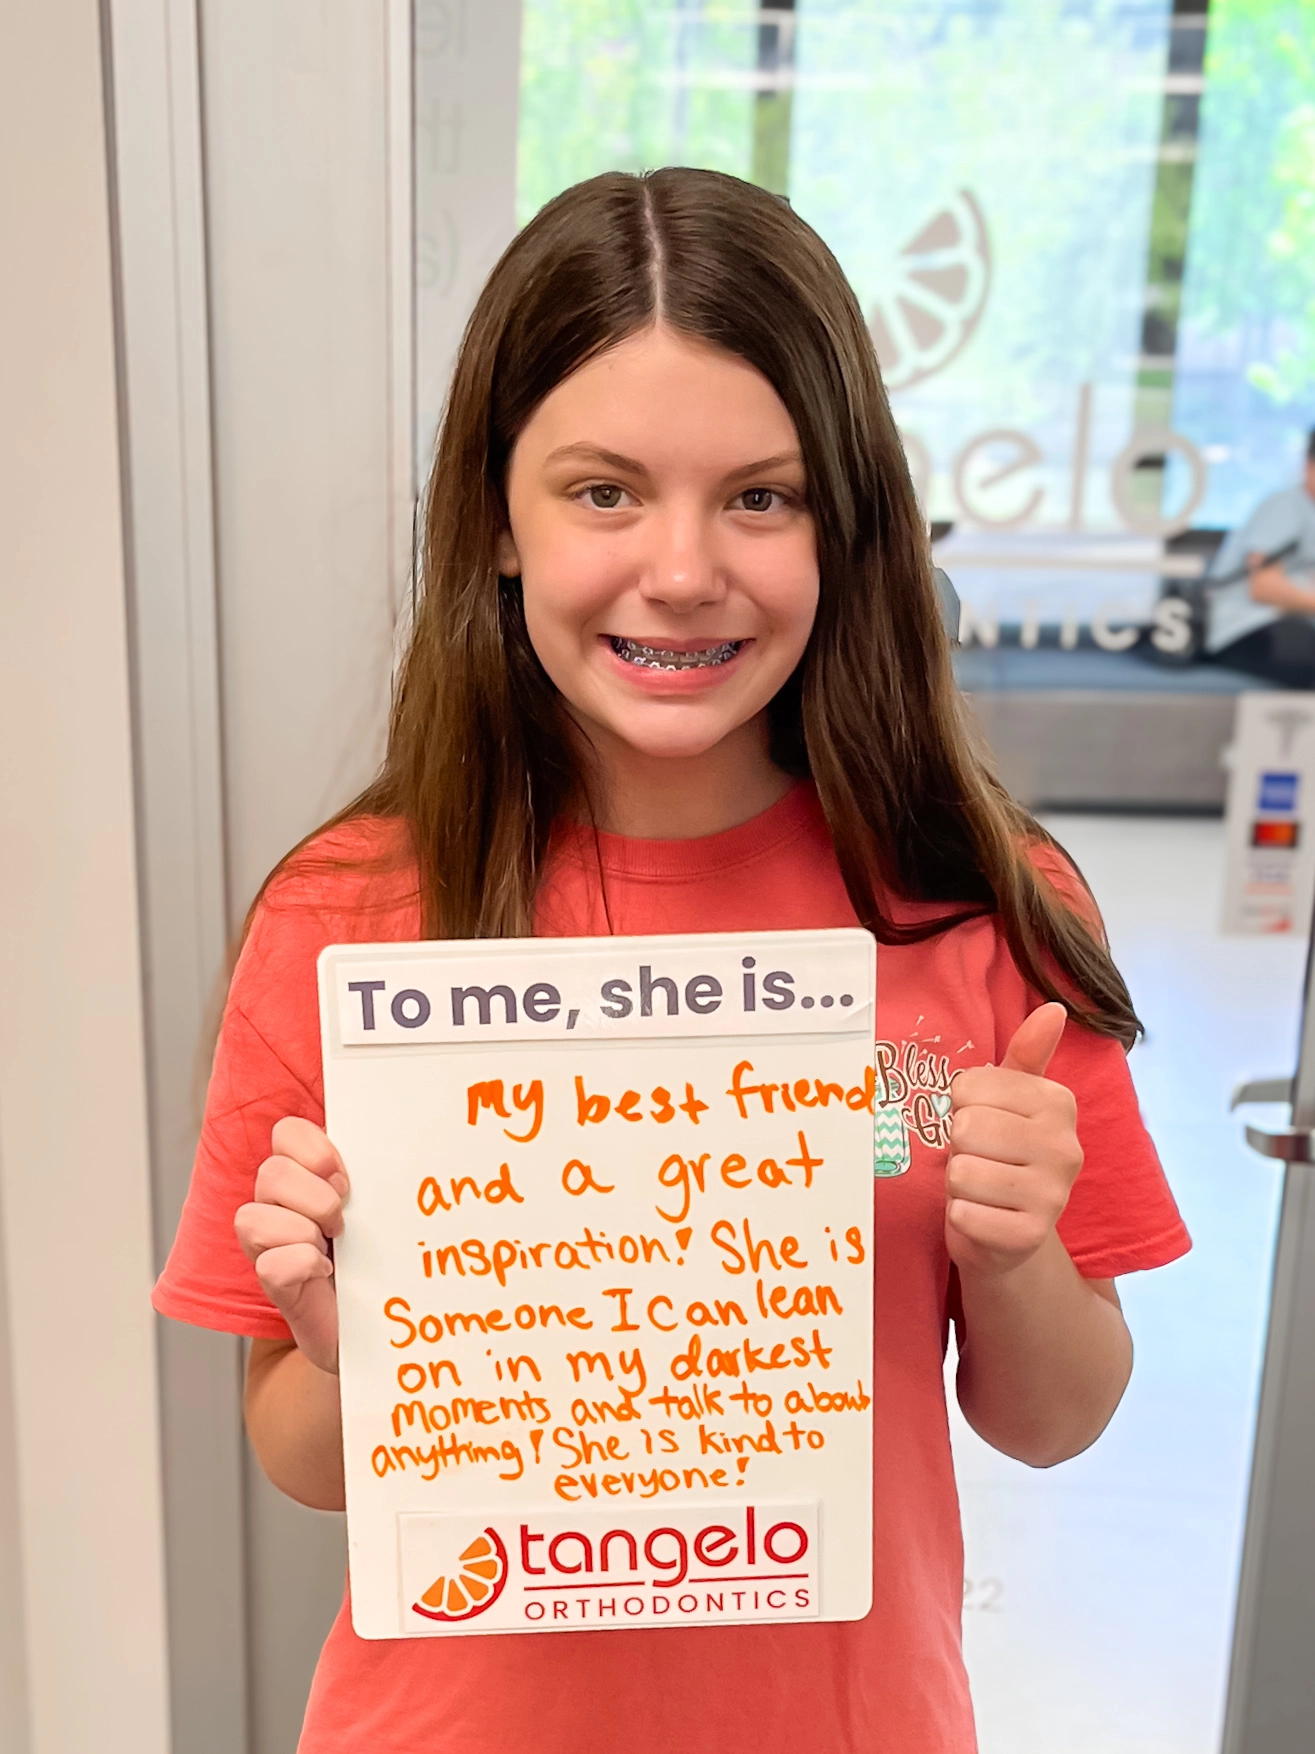 To me, she is...
My best friend
and a great
inspiration! She is
Someone I can lean
on in my darkest
moments and talk to about
anything! She is kind to
everyone!
tangelo
ORTHODONTICS
Bless
Gi
elo
NTICS
22